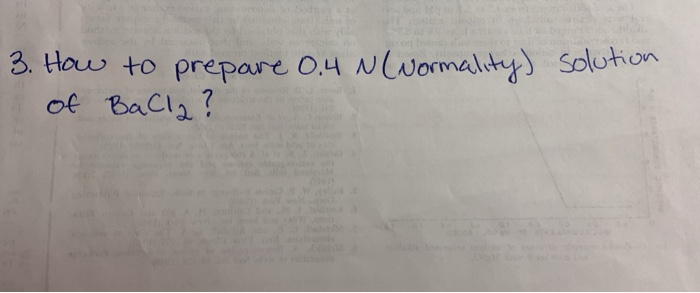 3. How to prepare 0.4 N (Normality) solution
of BaCl₂?